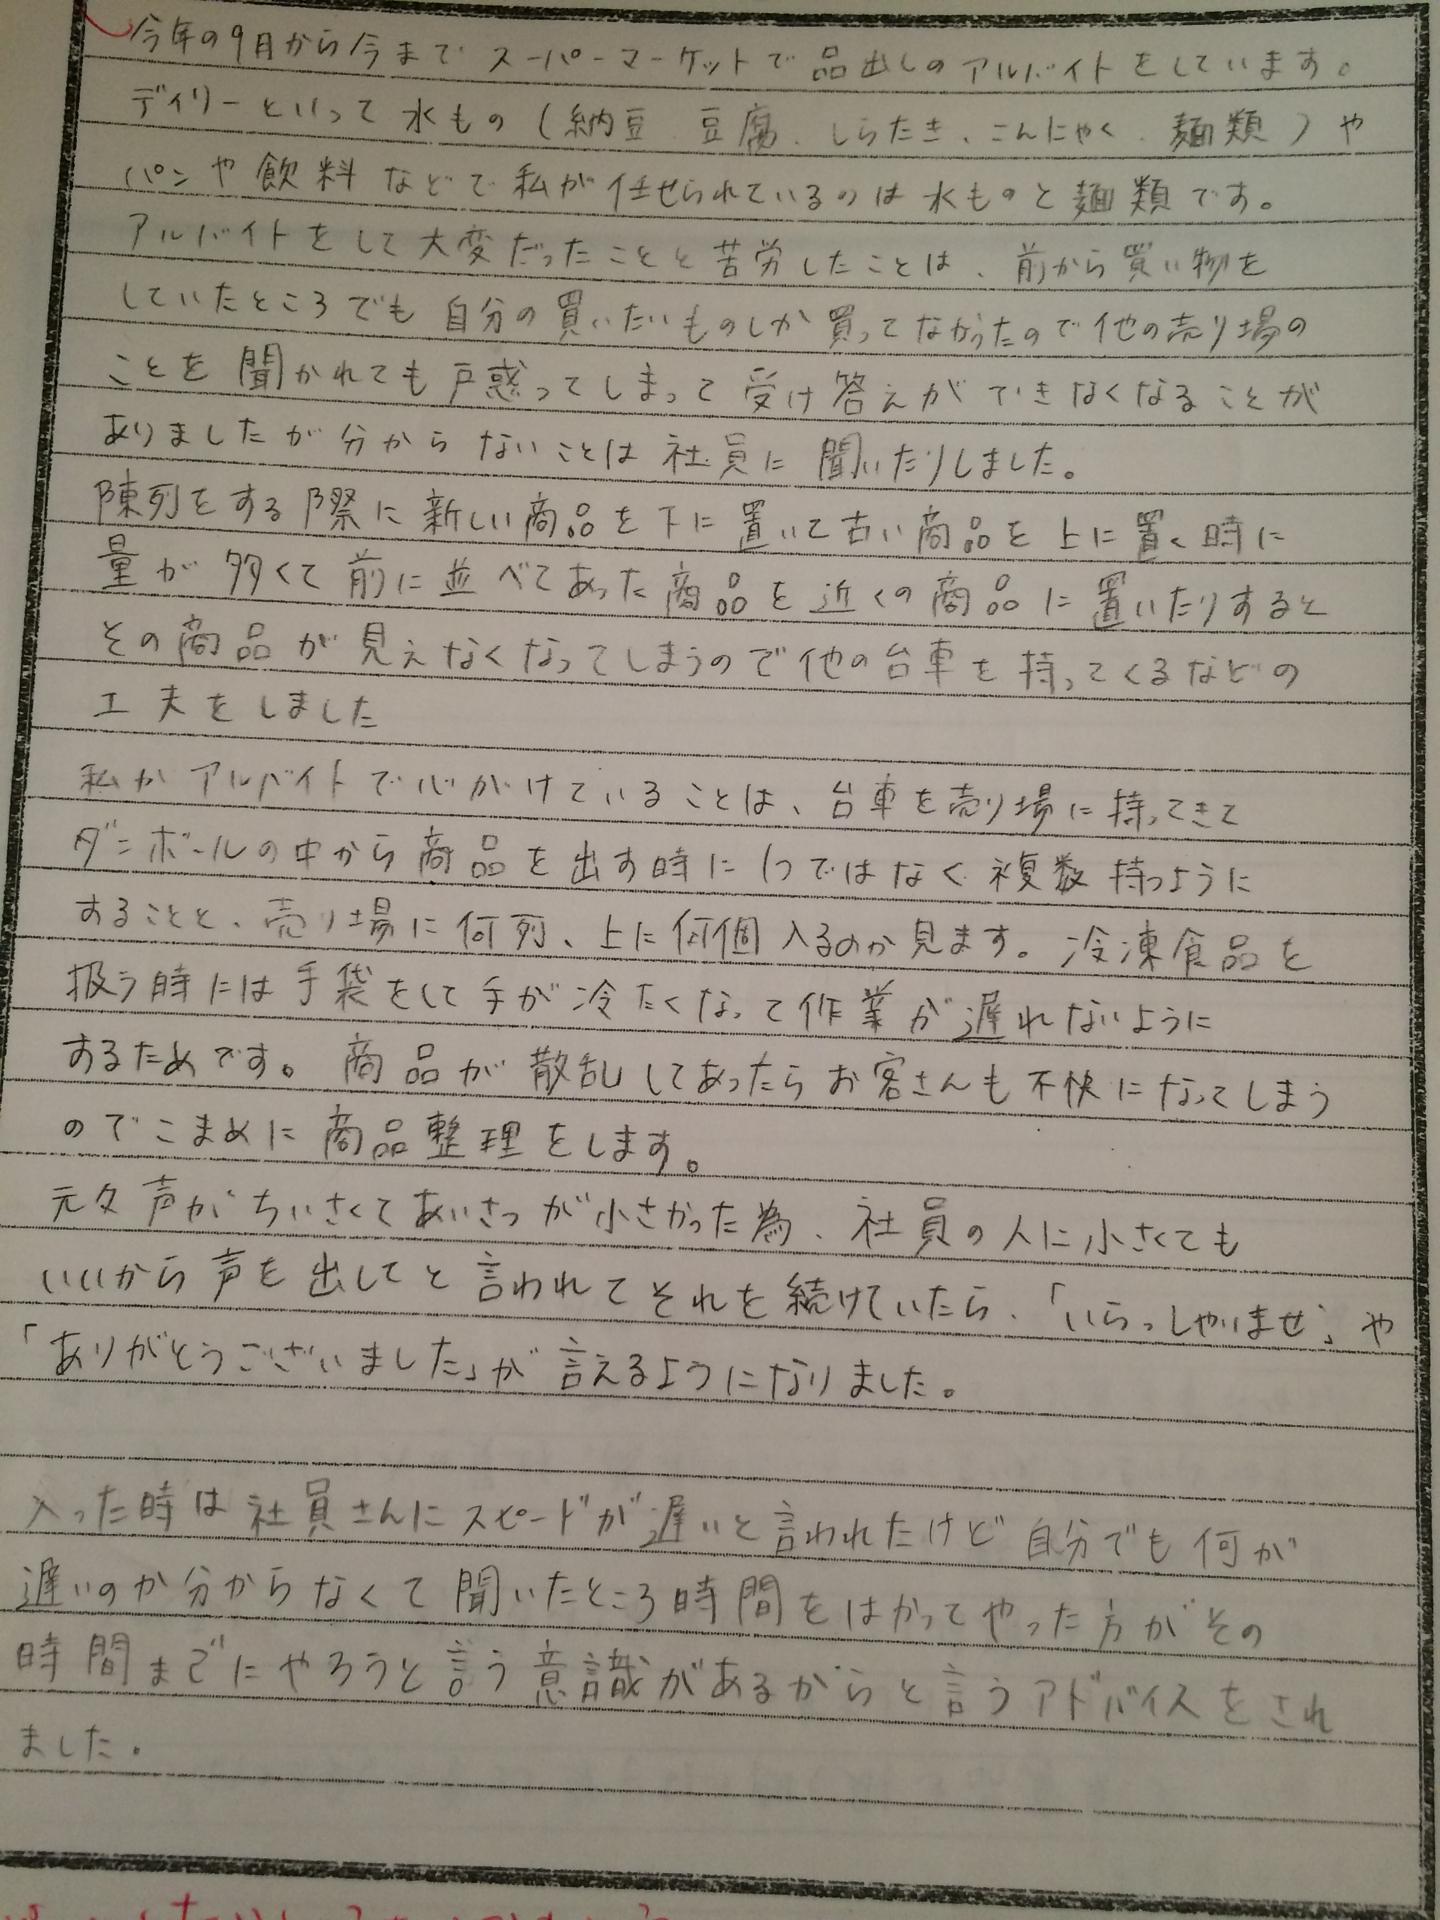 今年の9月から今までスーパーマーケットで品出しのアルバイトをしています。
デイリーといって水もの(納豆、豆腐、しらたき、こんにゃく、麺類)や
パンや飲料などで私が任せられているのは水ものと麺類です。
アルバイトをして大変だったことと苦労したことは、前から買い物を
していたところでも自分の買いたいものしか買ってなかったので他の売り場の
ことを聞かれても戸惑ってしまって受け答えができなくなることが
ありましたが分からないことは社員に聞いたりしました。
陳列をする際に新しい商品を下に置いて古い商品を上に置く時に
量が多くて前に並べてあった商品を近くの商品に置いたりすると
その商品が見えなくなってしまうので他の台車を持ってくるなどの
工夫をしました
私がアルバイトで心がけていることは、台車を売り場に持ってきて
ダンボールの中から商品を出す時に1つではなく複数持つように
することと、売り場に何列、上に何個入るのか見ます。冷凍食品を
扱う時には手袋をして手が冷たくなって作業が遅れないように
するためです。商品が散乱してあったらお客さんも不快になってしまう
のでこまめに商品整理をします。
元々声がちいさくてあいさつが小さかった為、社員の人に小さくても
いいから声を出してと言われてそれを続けていたら、「いらっしゃいませ」や
「ありがとうございました」が言えるようになりました。
入った時は社員さんにスピードが遅いと言われたけど自分でも何が
遅いのか分からなくて聞いたところ時間をはかってやった方がその
時間までにやろうと言う意識があるからと言うアドバイスをされ
ました。